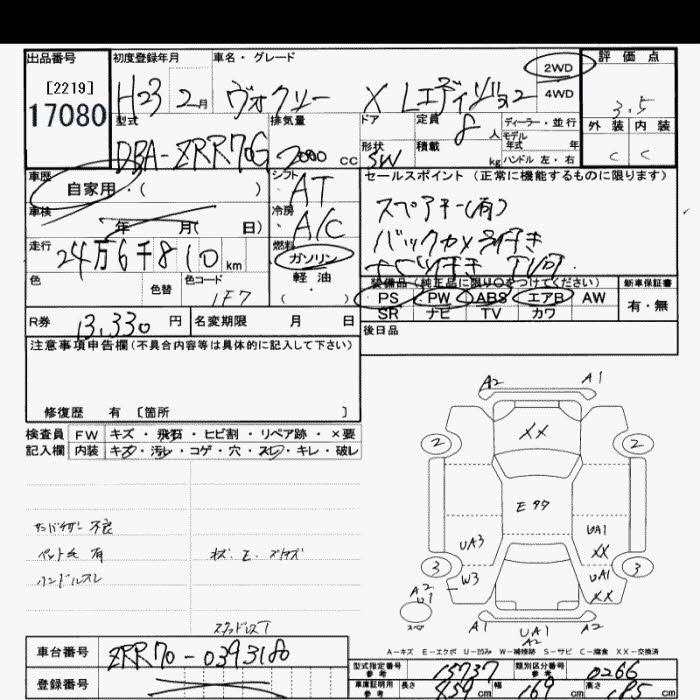 出品番号
[2219]
17080
初度登録年月
H23 2月
車名・グレード
ヴォクシー X Lエディション
2WD
4WD
評価点
3.5
外装 内装
C C
型式
DBA-ZRR70G
排気量
2000 cc
ドア
形状
5W
定員
8人
積載
kg
ディーラー・並行
モデル
年式 年
ハンドル 左・右
車歴
自家用・( )
シフト
AT
車検
年 月( 日)
冷房
A/C
走行
24万6千810km
燃料
ガソリン
軽油
・
( )
色
色替
色コード
1F7
セールスポイント(正常に機能するものに限ります)
スペアキー(有)
バックカメラ付き
ナビ付き TV可
装備品(純正品に限り○をつけてください)
PS PW ABS エアB AW
SR ナビ TV カワ
新車保証書
有・無
R券
13,330円
名変期限 月 日
後日品
注意事項申告欄(不具合内容等は具体的に記入して下さい)
修復歴 有 [箇所 ]
検査員
記入欄
FW キズ・飛石・ヒビ割・リペア跡・×要
内装 キズ・汚レ・コゲ・穴・スレ・キレ・破レ
サンバイザー不良
ペット毛 有
ハンドルスレ
スタッドレスT
A2 A1
XX
2 2
E
UA3
W3
UA1
XX
UA1
XX
3 3
A2
U1
スペア
A1
UA1
A2
A2
A-キズ E-エクボ U-凹み W-補修跡 S-サビ C-腐食 XX-交換済
車台番号
ZRR70-0393180
登録番号
型式指定番号
参考
15737
類別区分番号
参考
0266
車庫証明用
参考
長さ
459cm
幅
169cm
高さ
cm